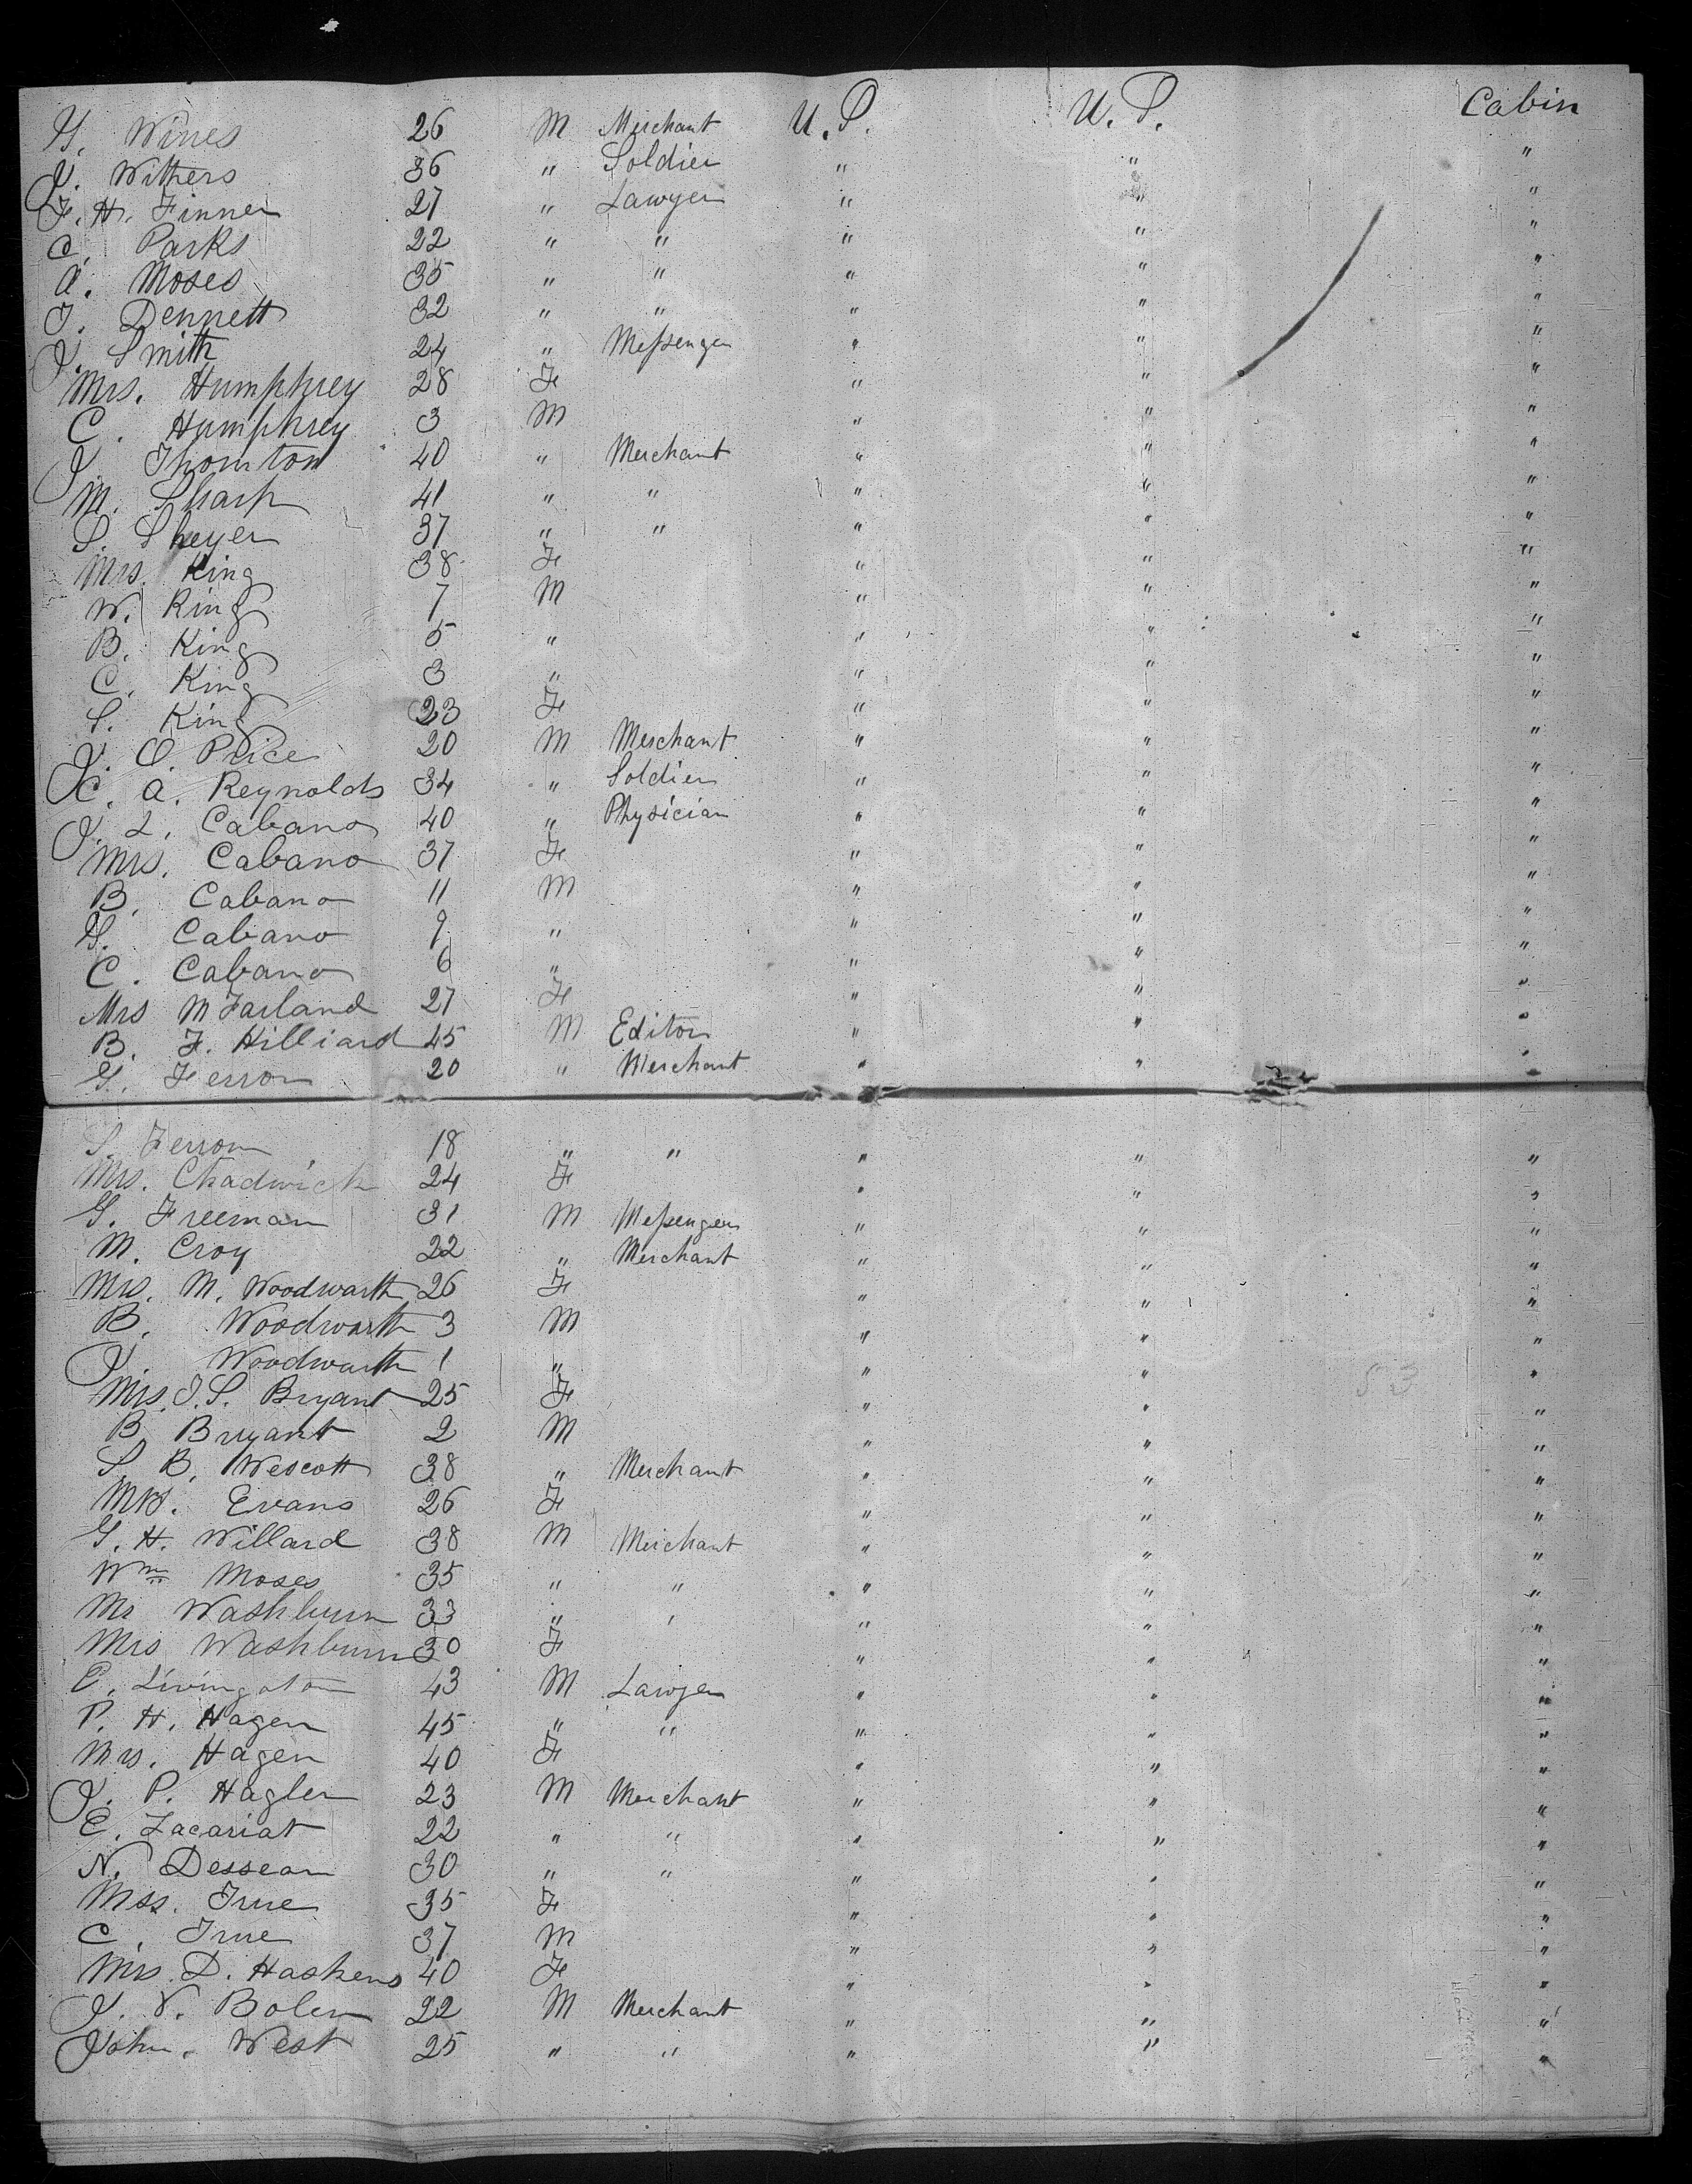 G. Wines 26 M Merchant U.S. U.S. Cabin
J. Withers 36 " Soldier " " "
F. H. Finner 27 " Lawyer " " "
C. Parks 22 " " " " "
A. Moses 35 " " " " "
T. Dennett 32 " " " " "
J. Smith 24 " Messenger " " "
Mrs. Humphrey 28 F " " "
C. Humphrey 3 M " " "
J. Thornton 40 " Merchant " " "
M. Sharp 41 " " " " "
S. Sheyer 37 " " " " "
Mrs. King 38 F " " "
W. King 7 M " " "
B. King 5 " " " "
C. King 3 " " " "
S. King 23 F " " "
J. O. Price 20 M Merchant " " "
C. A. Reynolds 34 " Soldier " " "
J. L. Cabano 40 " Physician " " "
Mrs. Cabano 37 F " " "
B. Cabano 11 M " " "
G. Cabano 9 " " " "
C. Cabano 6 " " " "
Mrs McFarland 27 F " " "
B. F. Hilliard 45 M Editor " " "
G. Ferron 20 " Merchant " " "
S. Ferron 18 " " " " "
Mrs. Chadwick 24 F " " "
G. Freeman 31 M Messenger " " "
M. Croy 22 " Merchant " " "
Mrs. M. Woodwarth 26 F " " "
B. Woodwarth 3 M " " "
J. Woodwarth 1 " " " "
53
Mrs. J. S. Bryant 25 F " " "
B. Bryant 2 M " " "
S. B. Wescott 38 " Merchant " " "
Mrs. Evans 26 F " " "
G. H. Willard 38 M Merchant " " "
Wm Moses 35 " " " " "
Mr Washburn 33 " " " " "
Mrs Washburn 30 F " " "
C. Livingston 43 M Lawyer " " "
P. H. Hagen 45 " " " " "
Mrs. Hagen 40 F " " "
J. P. Hagler 23 M Merchant " " "
E. Zacariat 22 " " " " "
N. Dessean 30 " " " " "
Mss. True 35 F " " "
C. True 37 M " " "
Mrs. D. Haskens 40 F " " "
J. V. Bolen 22 M Merchant " " "
John. West 25 " " " " "